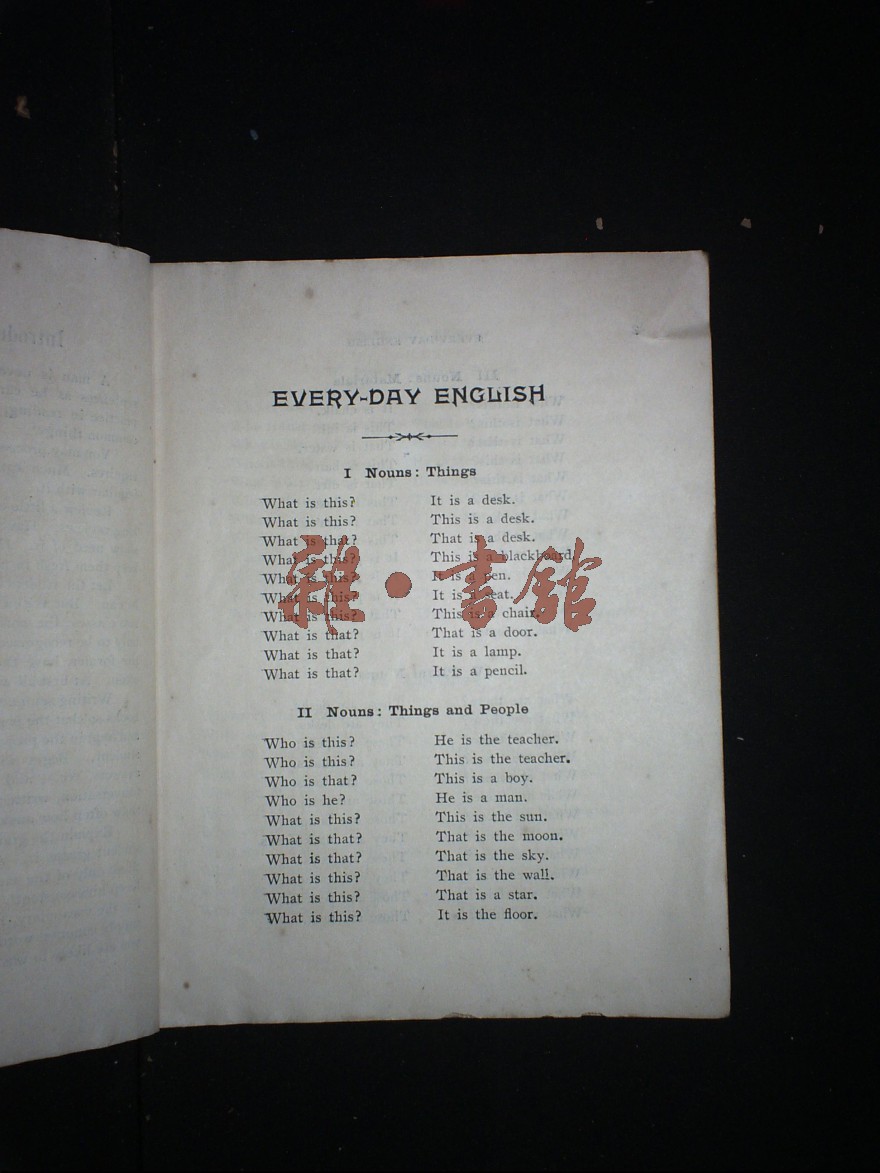 EVERY-DAY ENGLISH
I Nouns: Things
What is this? It is a desk.
What is this? This is a desk.
What is that? That is a desk.
What is this? This is a blackboard.
What is this? It is a pen.
What is this? It is a seat.
What is this? This is a chair.
What is that? That is a door.
What is that? It is a lamp.
What is that? It is a pencil.
雜·書館
II Nouns: Things and People
Who is this? He is the teacher.
Who is this? This is the teacher.
Who is that? This is a boy.
Who is he? He is a man.
What is this? This is the sun.
What is that? That is the moon.
What is that? That is the sky.
What is this? That is the wall.
What is this? That is a star.
What is this? It is the floor.